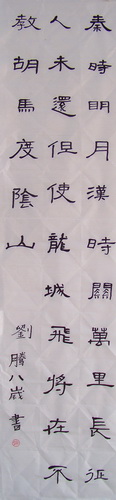 秦時明月漢時關萬里長征
人未還但使龍城飛將在不
教胡馬度陰山
劉騰八歲書